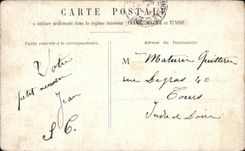 CARTE POSTALE
à utiliser seulement dans le régime intérieur (FRANCE, ALGÉRIE et TUNISIE)
Partie réservée à la correspondance.
Adresse du Destinataire
Votre
petit
Jean
S C.
M Maturin
rue Degras 40
Tours
Indre et Loire